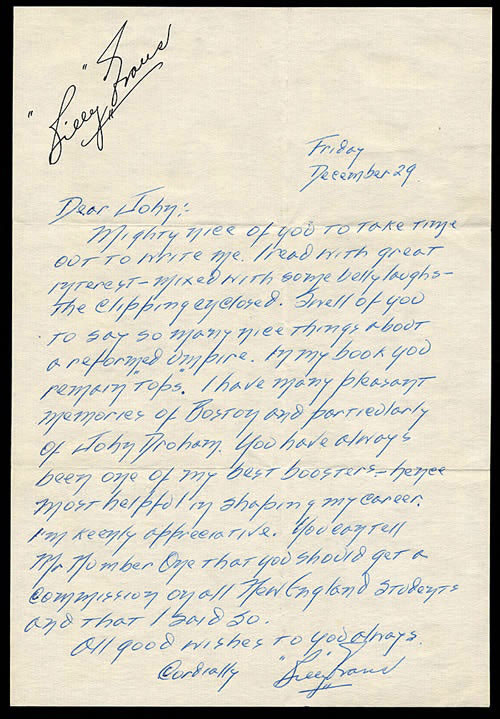 "Billy" Evans
Friday
December 29
Dear John:
Mighty nice of you to take time
out to write me. I read with great
interest - mixed with some belly laughs -
the clipping enclosed. Swell of you
to say so many nice things about
a reformed Umpire. In my book you
remain "tops". I have many pleasant
memories of Boston and particularly
of John Droham. You have always
been one of my best boosters - hence
most helpful in shaping my career.
I'm keenly appreciative. You can tell
Mr Number One that you should get a
commission on all New England Students
and that I said so.
All good wishes to you always.
Cordially "Billy" Evans